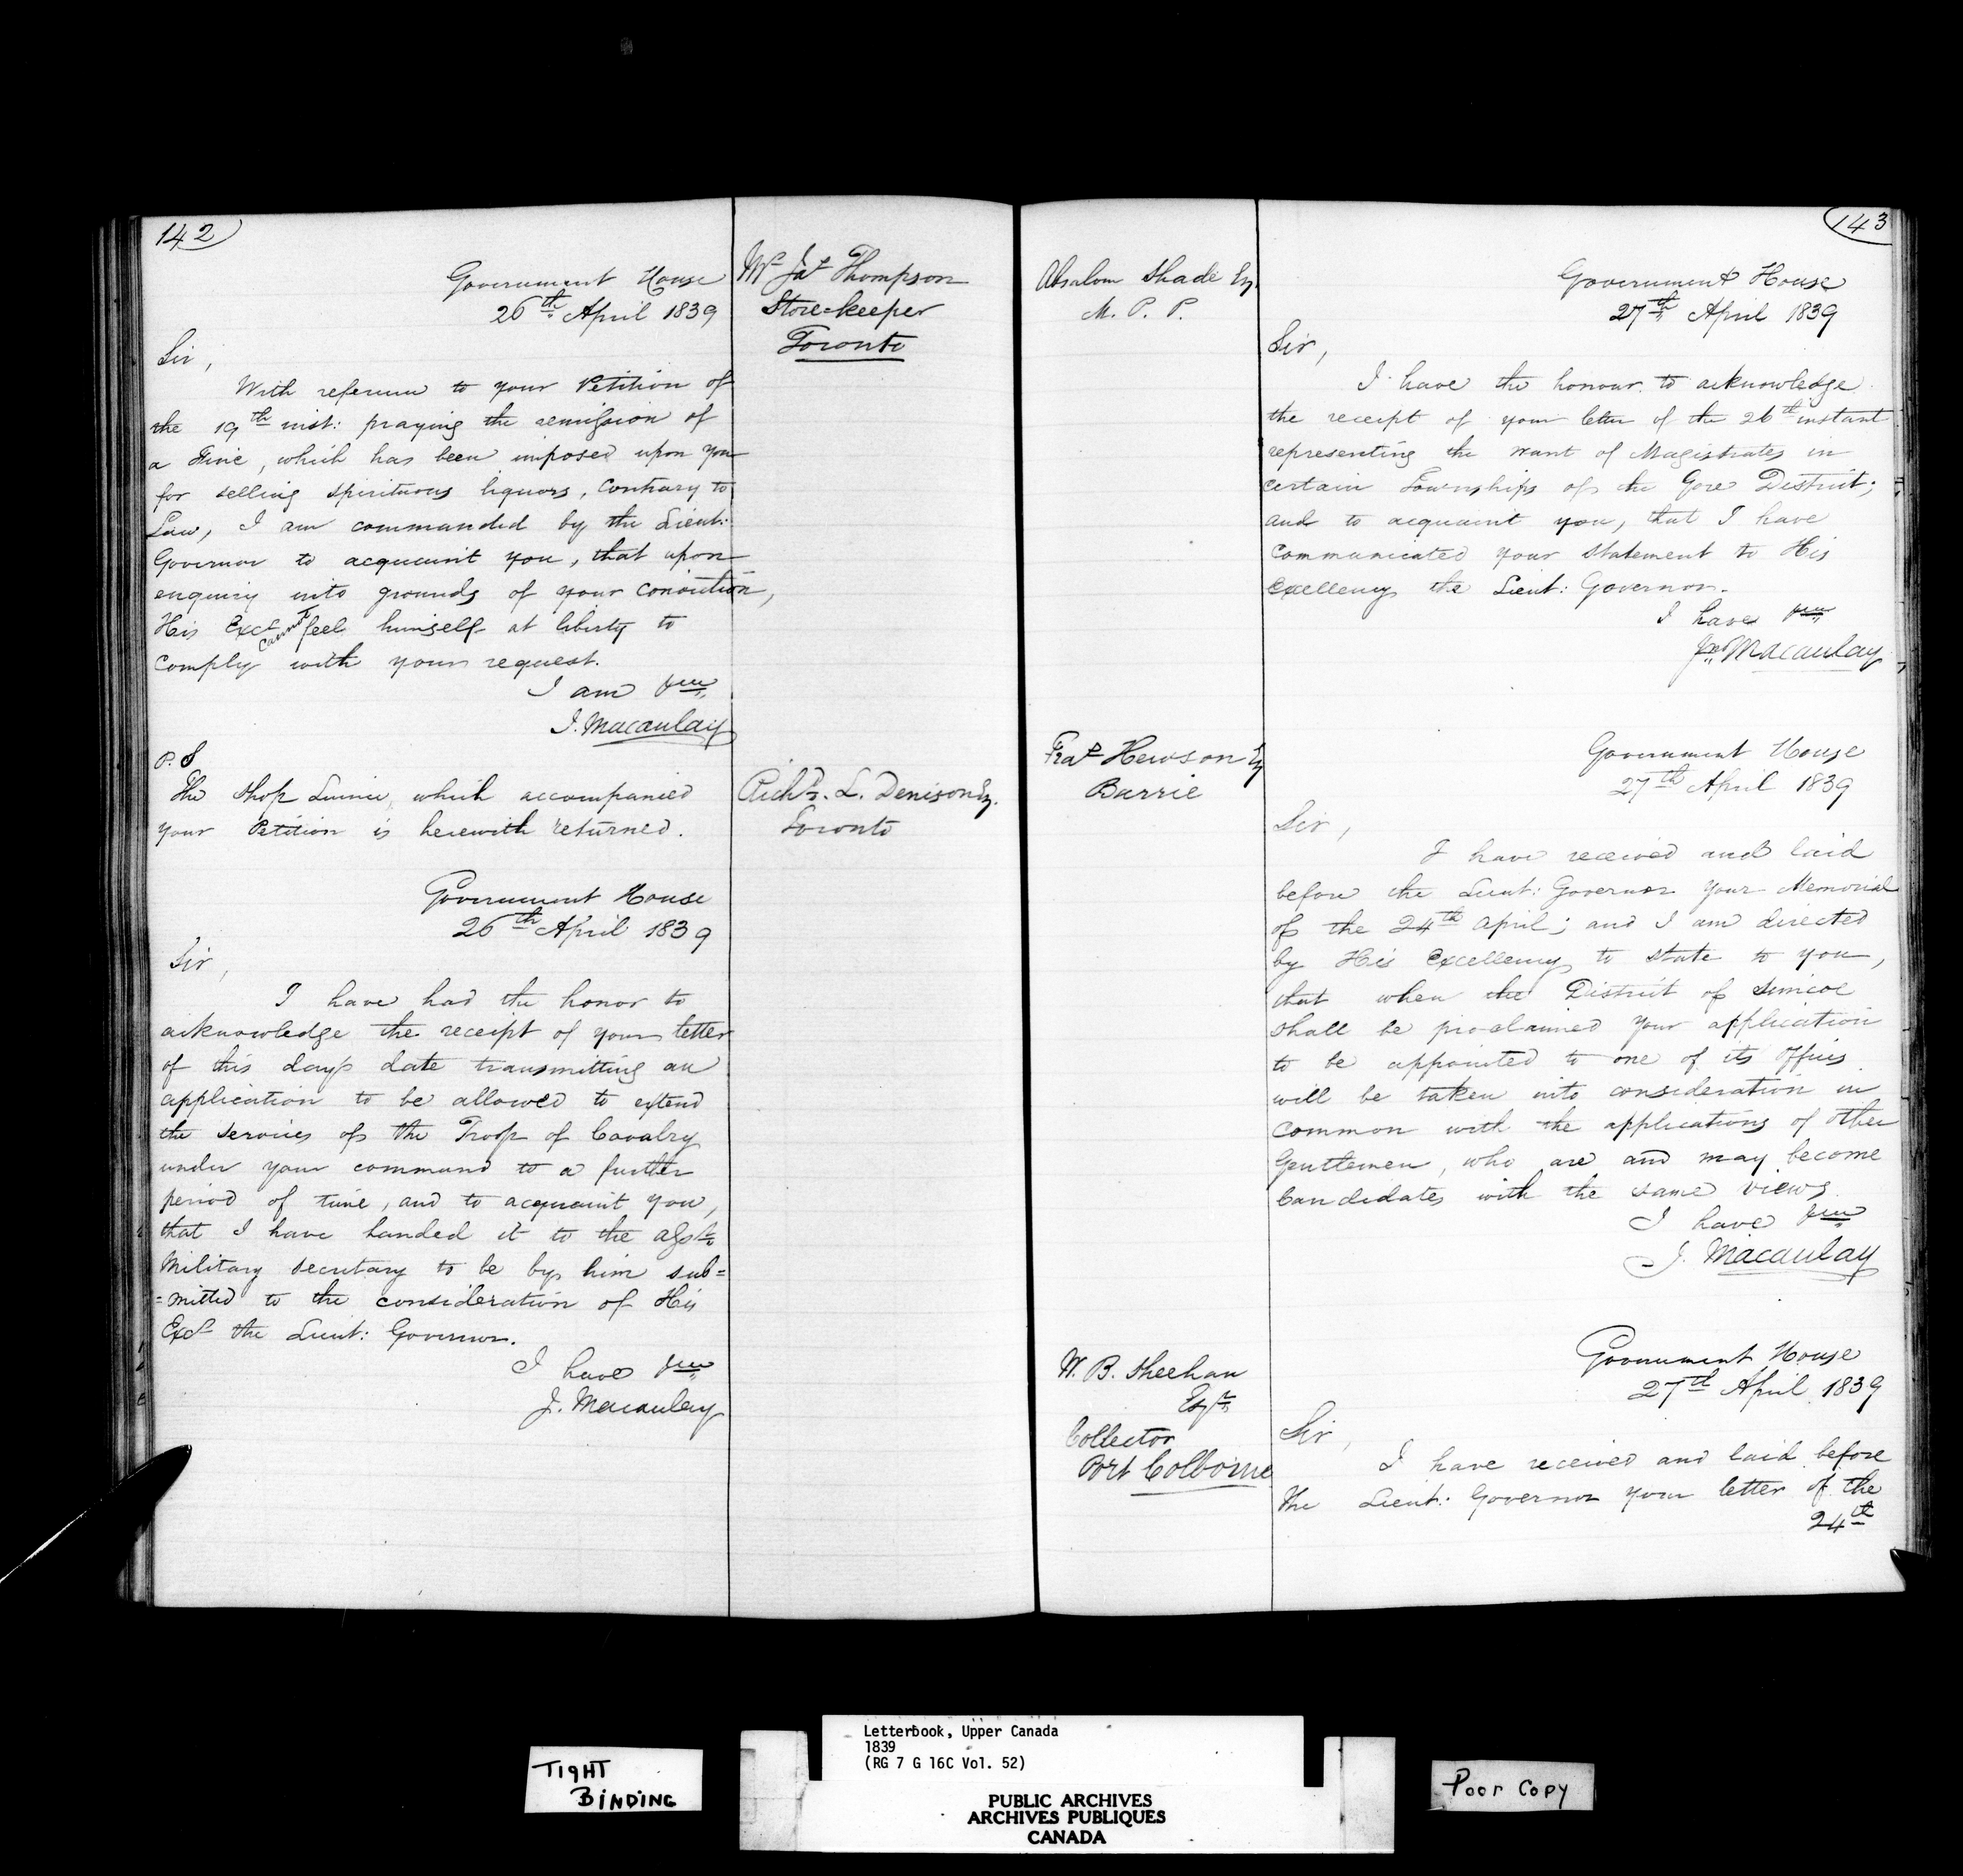 142
Government House
26th April 1839
Mr Jas Thompson
Store-keeper
Toronto
Sir,
With reference to your Petition of
the 19th inst: praying the remission of
a Fine, which has been imposed upon you
for selling spirituous liquors, contrary to
Law, I am commanded by the Lieut:
Governor to acquaint you, that upon
enquiry into grounds of your conviction,
His Excy cannot feel himself at liberty to
comply with your request.
I am &c
J. Macaulay
P.S
The Shop Licence, which accompanied
your Petition is herewith returned.
Richd. L. Denison Esq.
Toronto
Government House
26th April 1839
Sir,
I have had the honor to
acknowledge the receipt of your letter
of this day's date transmitting an
application to be allowed to extend
the services of the Troop of Cavalry
under your command to a further
period of time, and to acquaint you,
that I have handed it to the Asst
Military Secretary to be by him sub=
=mitted to the consideration of His
Excy the Lieut: Governor.
I have &c
J. Macaulay
143
Absalom Shade Esq.
M. P. P.
Government House
27th April 1839
Sir,
I have the honour to acknowledge
the receipt of your letter of the 26th instant
representing the want of Magistrates in
certain Townships of the Gore District;
and to acquaint you, that I have
communicated your statement to His
Excellency the Lieut: Governor.
I have &c
Jno Macaulay
Fras Hewson Esq
Barrie
Government House
27th April 1839
Sir,
I have received and laid
before the Lieut: Governor your Memorial
of the 24th April; and I am directed
by His Excellency to state to you,
that when the District of Simcoe
shall be proclaimed your application
to be appointed to one of its offices
will be taken into consideration in
common with the applications of other
Gentlemen, who are and may become
Candidates with the same views.
I have &c
J. Macaulay
W. B. Sheehan
Esqr
Collector
Port Colborne
Government House
27th April 1839
Sir,
I have received and laid before
the Lieut: Governor your letter of the
24th
TIGHT
BINDING
Letterbook, Upper Canada
1839
(RG 7 G 16C Vol. 52)
PUBLIC ARCHIVES
ARCHIVES PUBLIQUES
CANADA
Poor Copy